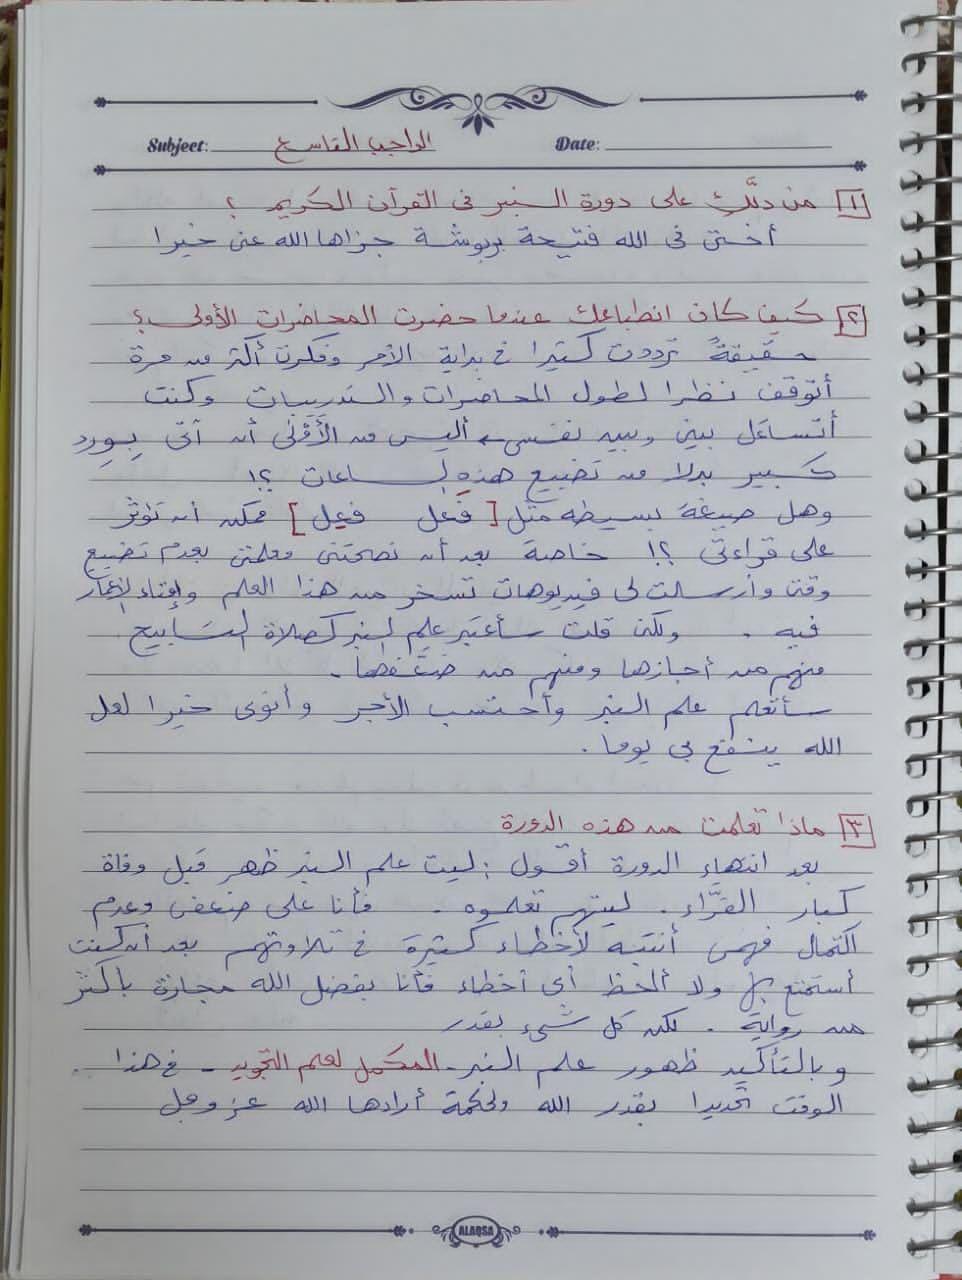 Subject: الواجب التاسع Date:
[١] من دلَّك على دورة النبر في القرآن الكريم ؟
أختي في الله فتيحة بربوشة جزاها الله عني خيرا
[٢] كيف كان انطباعك عندما حضرت المحاضرات الأولى ؟
حقيقةً ترددت كثيرا في بداية الأمر وفكرت أكثر من مرة
أتوقف نظرا لطول المحاضرات والتدريبات وكنت
أتساءل بيني وبين نفسي أليس من الأَوْلى أن آتي بورد
كبير بدلا من تضييع هذه الساعات ؟!
وهل صيغة بسيطة مثل [ فَعل فعِل ] ممكن أن تؤثر
على قراءتي ؟! خاصة بعد أن نصحتني معلمتي بعدم تضييع
وقتي وأرسلت لي فيديوهات تسخر من هذا العلم وإفناء الأعمار
فيه . ولكن قلت سأعتبر علم النبر كصلاة التسابيح
منهم من أجازها ومنهم من ضعَّفها .
سأتعلم علم النبر وأحتسب الأجر وأنوي خيرا لعل
الله ينفع بي يوما .
[٣] ماذا تعلمت من هذه الدورة
بعد انتهاء الدورة أقول : ليت علم النبر ظهر قبل وفاة
كبار القرَّاء . ليتهم تعلموه . فأنا على ضعفي وعدم
اكتمال فهمي أنتبه لأخطاء كثيرة في تلاوتهم بعد أن كنت
أستمتع بها ولا ألحظ أي أخطاء فأنا بفضل الله مجازة بأكثر
من رواية . لكن كل شيء بقدر
وبالتأكيد ظهور علم النبر - المكمل لعلم التجويد - في هذا
الوقت تحديدا بقدر الله ولحكمة أرادها الله عز وجل
ALAQSA